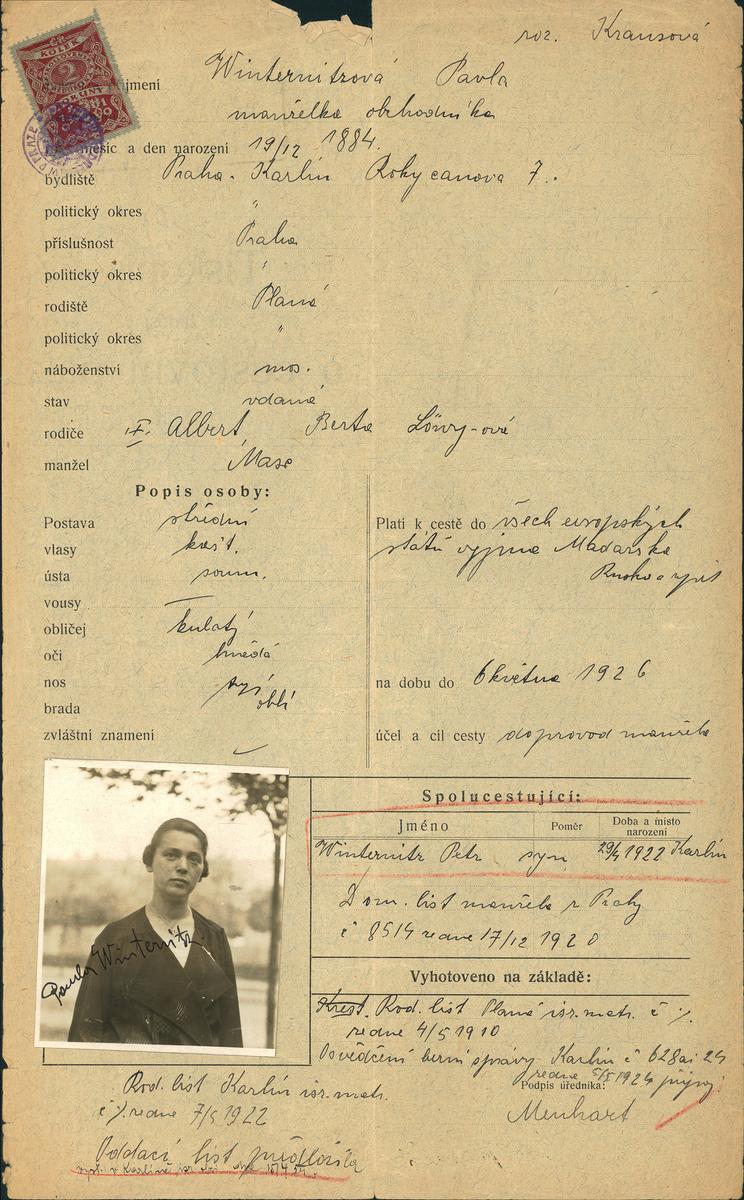 roz. Krausová
KOLEK
2
KORUNY
jméní Winternitzová Pavla
manželka obchodníka
měsíc a den narození 19/12 1884.
bydliště Praha-Karlín Rokycanova 7.
politický okres "
příslušnost Praha
politický okres "
rodiště Planá
politický okres "
náboženství mos.
stav vdaná
rodiče Albert Berta Löwy-ová
manžel
Popis osoby:
Postava střední
vlasy kašt.
ústa soum.
vousy —
obličej kulatý
oči hnědá
nos
brada oblí
zvláštní znamení
Platí k cestě do všech evropských
států vyjma Maďarska
Ruska
na dobu do 6 května 1926
účel a cíl cesty doprovod manžela
Spolucestující:
Jméno Poměr Doba a místo narození
Winternitz Petr syn 29/4 1922 Karlín
Dom. list manžela z Prahy
č 8514 ze dne 17/12 1920
Vyhotoveno na základě:
Křest. Rod. list Planá isr. matr. č %
ze dne 4/5 1910
Osvědčení berní správy Karlín č 628 24
ze dne 5/5 1924
Podpis úředníka:
Menhart
Pavla Winternitz
Rod. list Karlín isr. matr.
č % ze dne 7/5 1922
Oddací list předložila